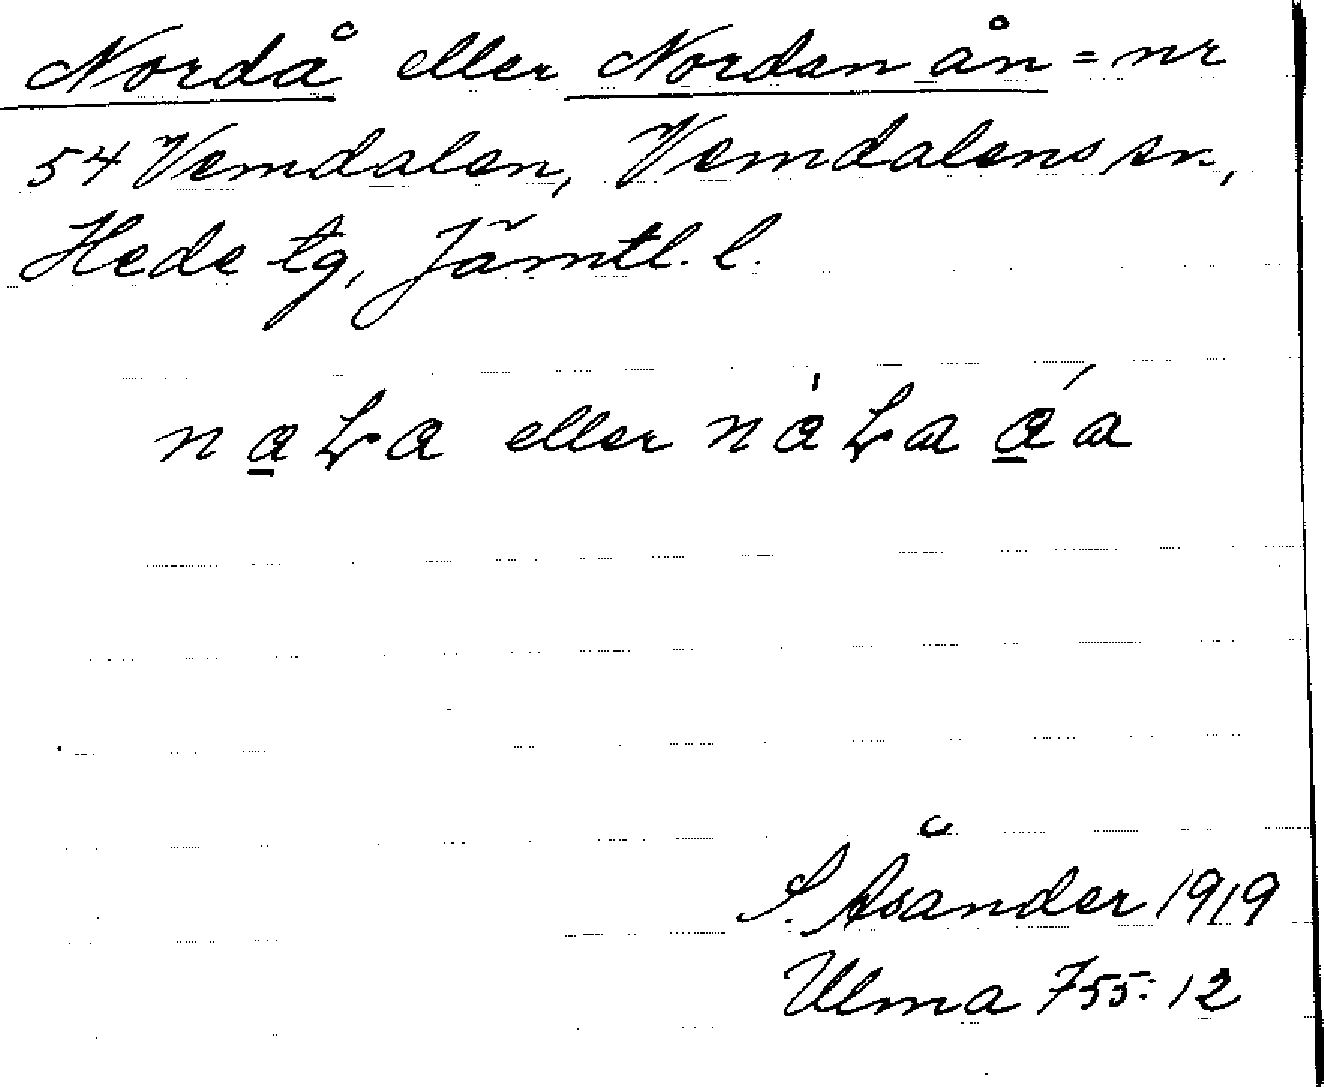 Nordå eller Nordanån = nr
54 Vemdalen, Vemdalens sn,
Hede tg, Jämtl. l.
eller
S. Åsander 1919
Ulma 755:12